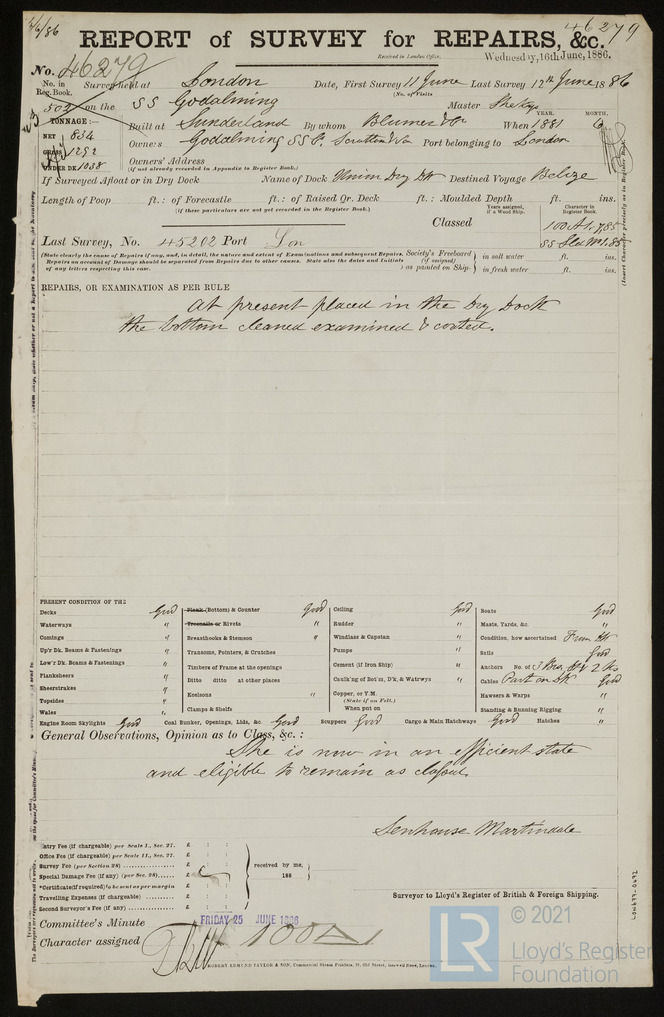 46279
REPORT of SURVEY for REPAIRS, &c.
Received in London Office, Wednesday, 16th June, 1886.
No. 46279
No. in Reg. Book. Survey held at London Date, First Survey 11 June Last Survey 12th June 1886
(No. of Visits
502 on the SS Godalming Master
TONNAGE:— YEAR. MONTH.
NET 834 Built at Sunderland By whom Blumer & Co When 1881 6
GROSS 1292 Owners Godalming SS Co. Scrutton & Co Port belonging to London
UNDER DK 1038 Owners' Address
(if not already recorded in Appendix to Register Book.)
If Surveyed Afloat or in Dry Dock Name of Dock Union Dry Dk Destined Voyage Belize
Length of Poop ft.: of Forecastle ft.: of Raised Qr. Deck ft.: Moulded Depth ft. ins.
(if these particulars are not yet recorded in the Register Book.)
Years assigned, if a Wood Ship. Character in Register Book.
Classed 100 A1. 7,85
Last Survey, No. 45202 Port Lon
(State clearly the cause of Repairs if any, and, in detail, the nature and extent of Examinations and subsequent Repairs.
Repairs on account of Damage should be separated from Repairs due to other causes. State also the dates and initials
of any letters respecting this case.
Society's Freeboard (if assigned) as painted on Ship in salt water ft. ins.
in fresh water ft. ins.
REPAIRS, OR EXAMINATION AS PER RULE
At present placed in the Dry Dock
the bottom cleaned examined & coated.
PRESENT CONDITION OF THE
Decks Good Plank (Bottom) & Counter Good Ceiling Good Boats Good
Waterways " Treenails or Rivets " Rudder " Masts, Yards, &c. "
Comings " Breasthooks & Stemson " Windlass & Capstan " Condition, how ascertained From Dk
Up'r Dk. Beams & Fastenings " Transoms, Pointers, & Crutches Pumps " Sails Good
Low'r Dk. Beams & Fastenings " Timbers of Frame at the openings Cement (if Iron Ship) " Anchors No. of 3
Planksheers " Ditto ditto at other places Caulk'g of Bot'm, D'k, & Watrwys " Cables Part on Dk Good
Sheerstrakes " Keelsons " Copper, or Y.M. Hawsers & Warps "
Topsides " (State if on Felt.) Standing & Running Rigging "
Wales " Clamps & Shelfs When put on
Engine Room Skylights Good Coal Bunker, Openings, Lids, &c. Good Scuppers Good Cargo & Main Hatchways Good Hatches "
General Observations, Opinion as to Class, &c.:
She is now in an efficient state
and eligible to remain as classed.
Senhouse Martindale
Entry Fee (if chargeable) per Scale I., Sec. 27. £ : :
Office Fee (if chargeable) per Scale II., Sec. 27. £ : :
Survey Fee (per Section 28) £ : :
Special Damage Fee (if any) (per Sec. 28) £ : :
*Certificate (if required) to be sent as per margin
Travelling Expenses (if chargeable) £ : :
Second Surveyor's Fee (if any) £ : :
received by me,
188
Surveyor to Lloyd's Register of British & Foreign Shipping.
Committee's Minute FRIDAY 25 JUNE 1886
Character assigned 100A1
ROBERT EDMUND TAYLOR & SON,
LON677-0672
LR
© 2021
Lloyd's Register
Foundation